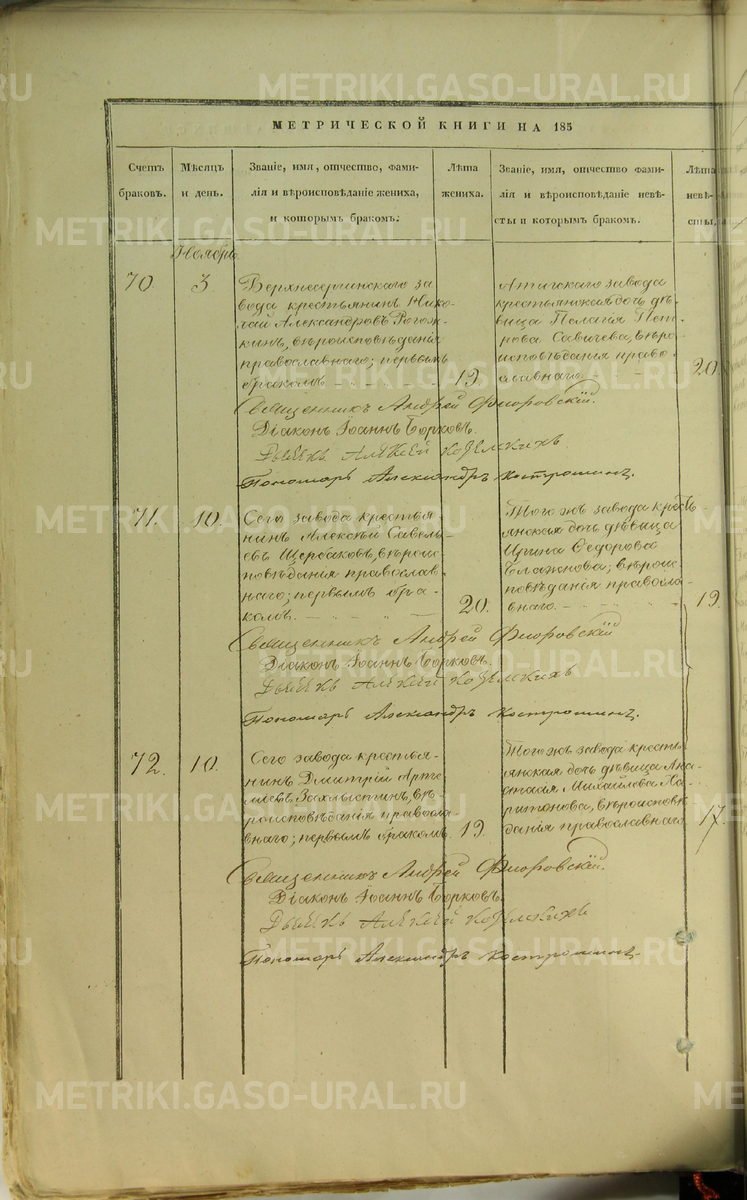 МЕТРИЧЕСКОЙ КНИГИ НА 185
Счетъ
браковъ.
Мѣсяцъ
и день.
Званіе, имя, отчество, фами-
лія и вѣроисповѣданіе жениха,
и которымъ бракомъ.
Лѣта
жениха.
Званіе, имя, отчество фами-
лія и вѣроисповѣданіе невѣ-
сты и которымъ бракомъ.
Лѣта
невѣ-
сты,
Ноябрь
70
3.
Верхнесергинскаго за
вода крестьянинъ Нико-
лай Александровъ Рогож-
кинъ, вѣроисповѣданія
православнаго; первымъ
бракомъ
19.
Атигскаго завода
крестьянская дочь дѣ-
вица Пелагія Пет-
рова Савичева, вѣро-
исповѣданія право-
славнаго.
20.
Священникъ Андрей Флоровскій.
Діаконъ Іоаннъ Борковъ.
Дьячекъ Алексей Козелскихъ
Пономарь Александръ Костроминъ.
71.
10.
Сего завода крестья
нинъ Алексѣй Савель-
евъ Щербаковъ, вѣроис-
повѣданія православ-
наго; первымъ бра-
комъ.
20.
Того жъ завода кресть-
янская дочь дѣвица
Ирина Ѳедорова
вѣроис-
повѣданія правосла-
внаго.
19.
Священникъ Андрей Флоровскій
Діаконъ Іоаннъ Борковъ.
Дьячекъ Алексей Козелскихъ
Пономарь Александръ Костроминъ.
72.
10.
Сего завода крестья-
нинъ Дмитрій Арте-
міевъ Захлыстинъ, вѣ-
роисповѣданія правосла-
внаго; первымъ бракомъ
19.
Того жъ завода кресть-
янская дочь дѣвица Ана-
стасія Михайлова Ха-
ритонова, вѣроисповѣ-
данія православнаго
17.
Священникъ Андрей Флоровскій.
Діаконъ Іоаннъ Борковъ.
Дьячекъ Алексей Козелскихъ
Пономарь Александръ Костроминъ.
METRIKI.GASO-URAL.RU
METRIKI.GASO-URAL.RU
METRIKI.GASO-URAL.RU
METRIKI.GASO-URAL.RU
METRIKI.GASO-URAL.RU
METRIKI.GASO-URAL.RU
METRIKI.GASO-URAL.RU
METRIKI.GASO-URAL.RU